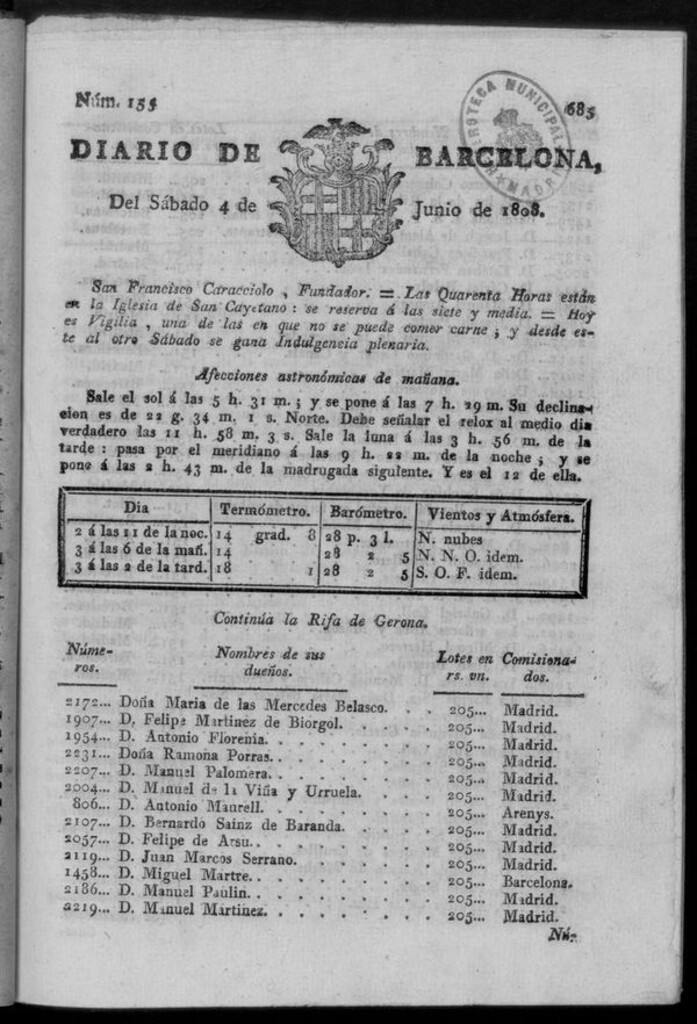 Núm. 155
685
DIARIO DE BARCELONA,
Del Sábado 4 de Junio de 1808.
San Francisco Caracciolo, Fundador. = Las Quarenta Horas están
en la Iglesia de San Cayetano: se reserva á las siete y media. = Hoy
es Vigilia, una de las en que no se puede comer carne; y desde es-
te al otro Sábado se gana Indulgencia plenaria.
Afecciones astronómicas de mañana.
Sale el sol á las 5 h. 31 m.; y se pone á las 7 h. 29 m. Su declina-
cion es de 22 g. 34 m. 1 s. Norte. Debe señalar el relox al medio dia
verdadero las 11 h. 58 m. 3 s. Sale la luna á las 3 h. 56 m. de la
tarde: pasa por el meridiano á las 9 h. 22 m. de la noche; y se
pone á las 2 h. 43 m. de la madrugada siguiente. Y es el 12 de ella.
Dia Termómetro. Barómetro. Vientos y Atmósfera.
2 á las 11 de la noc. 14 grad. 8 28 p. 3 l. N. nubes
3 á las 6 de la mañ. 14 28 2 5 N. N. O. idem.
3 á las 2 de la tard. 18 1 28 2 5 S. O. F. idem.
Continúa la Rifa de Gerona.
Núme- Nombres de sus Lotes en Comisiona-
ros. dueños. rs. vn. dos.
2172... Doña Maria de las Mercedes Belasco. . . 205... Madrid.
1907... D. Felipe Martinez de Biorgol. . . . . 205... Madrid.
1954... D. Antonio Florenia. . . . . . . . . 205... Madrid.
2231... Doña Ramona Porras. . . . . . . . . 205... Madrid.
2207... D. Manuel Palomera. . . . . . . . . 205... Madrid.
2004... D. Manuel de la Viña y Urruela. . . . . 205... Madrid.
806... D. Antonio Maurell. . . . . . . . . 205... Arenys.
2107... D. Bernardo Sainz de Baranda. . . . . . 205... Madrid.
2057... D. Felipe de Arsu. . . . . . . . . . 205... Madrid.
2119... D. Juan Marcos Serrano. . . . . . . . 205... Madrid.
1458... D. Miguel Martre. . . . . . . . . . 205... Barcelona.
2186... D. Manuel Paulin. . . . . . . . . . 205... Madrid.
2219... D. Manuel Martinez. . . . . . . . . 205... Madrid.
Nú-